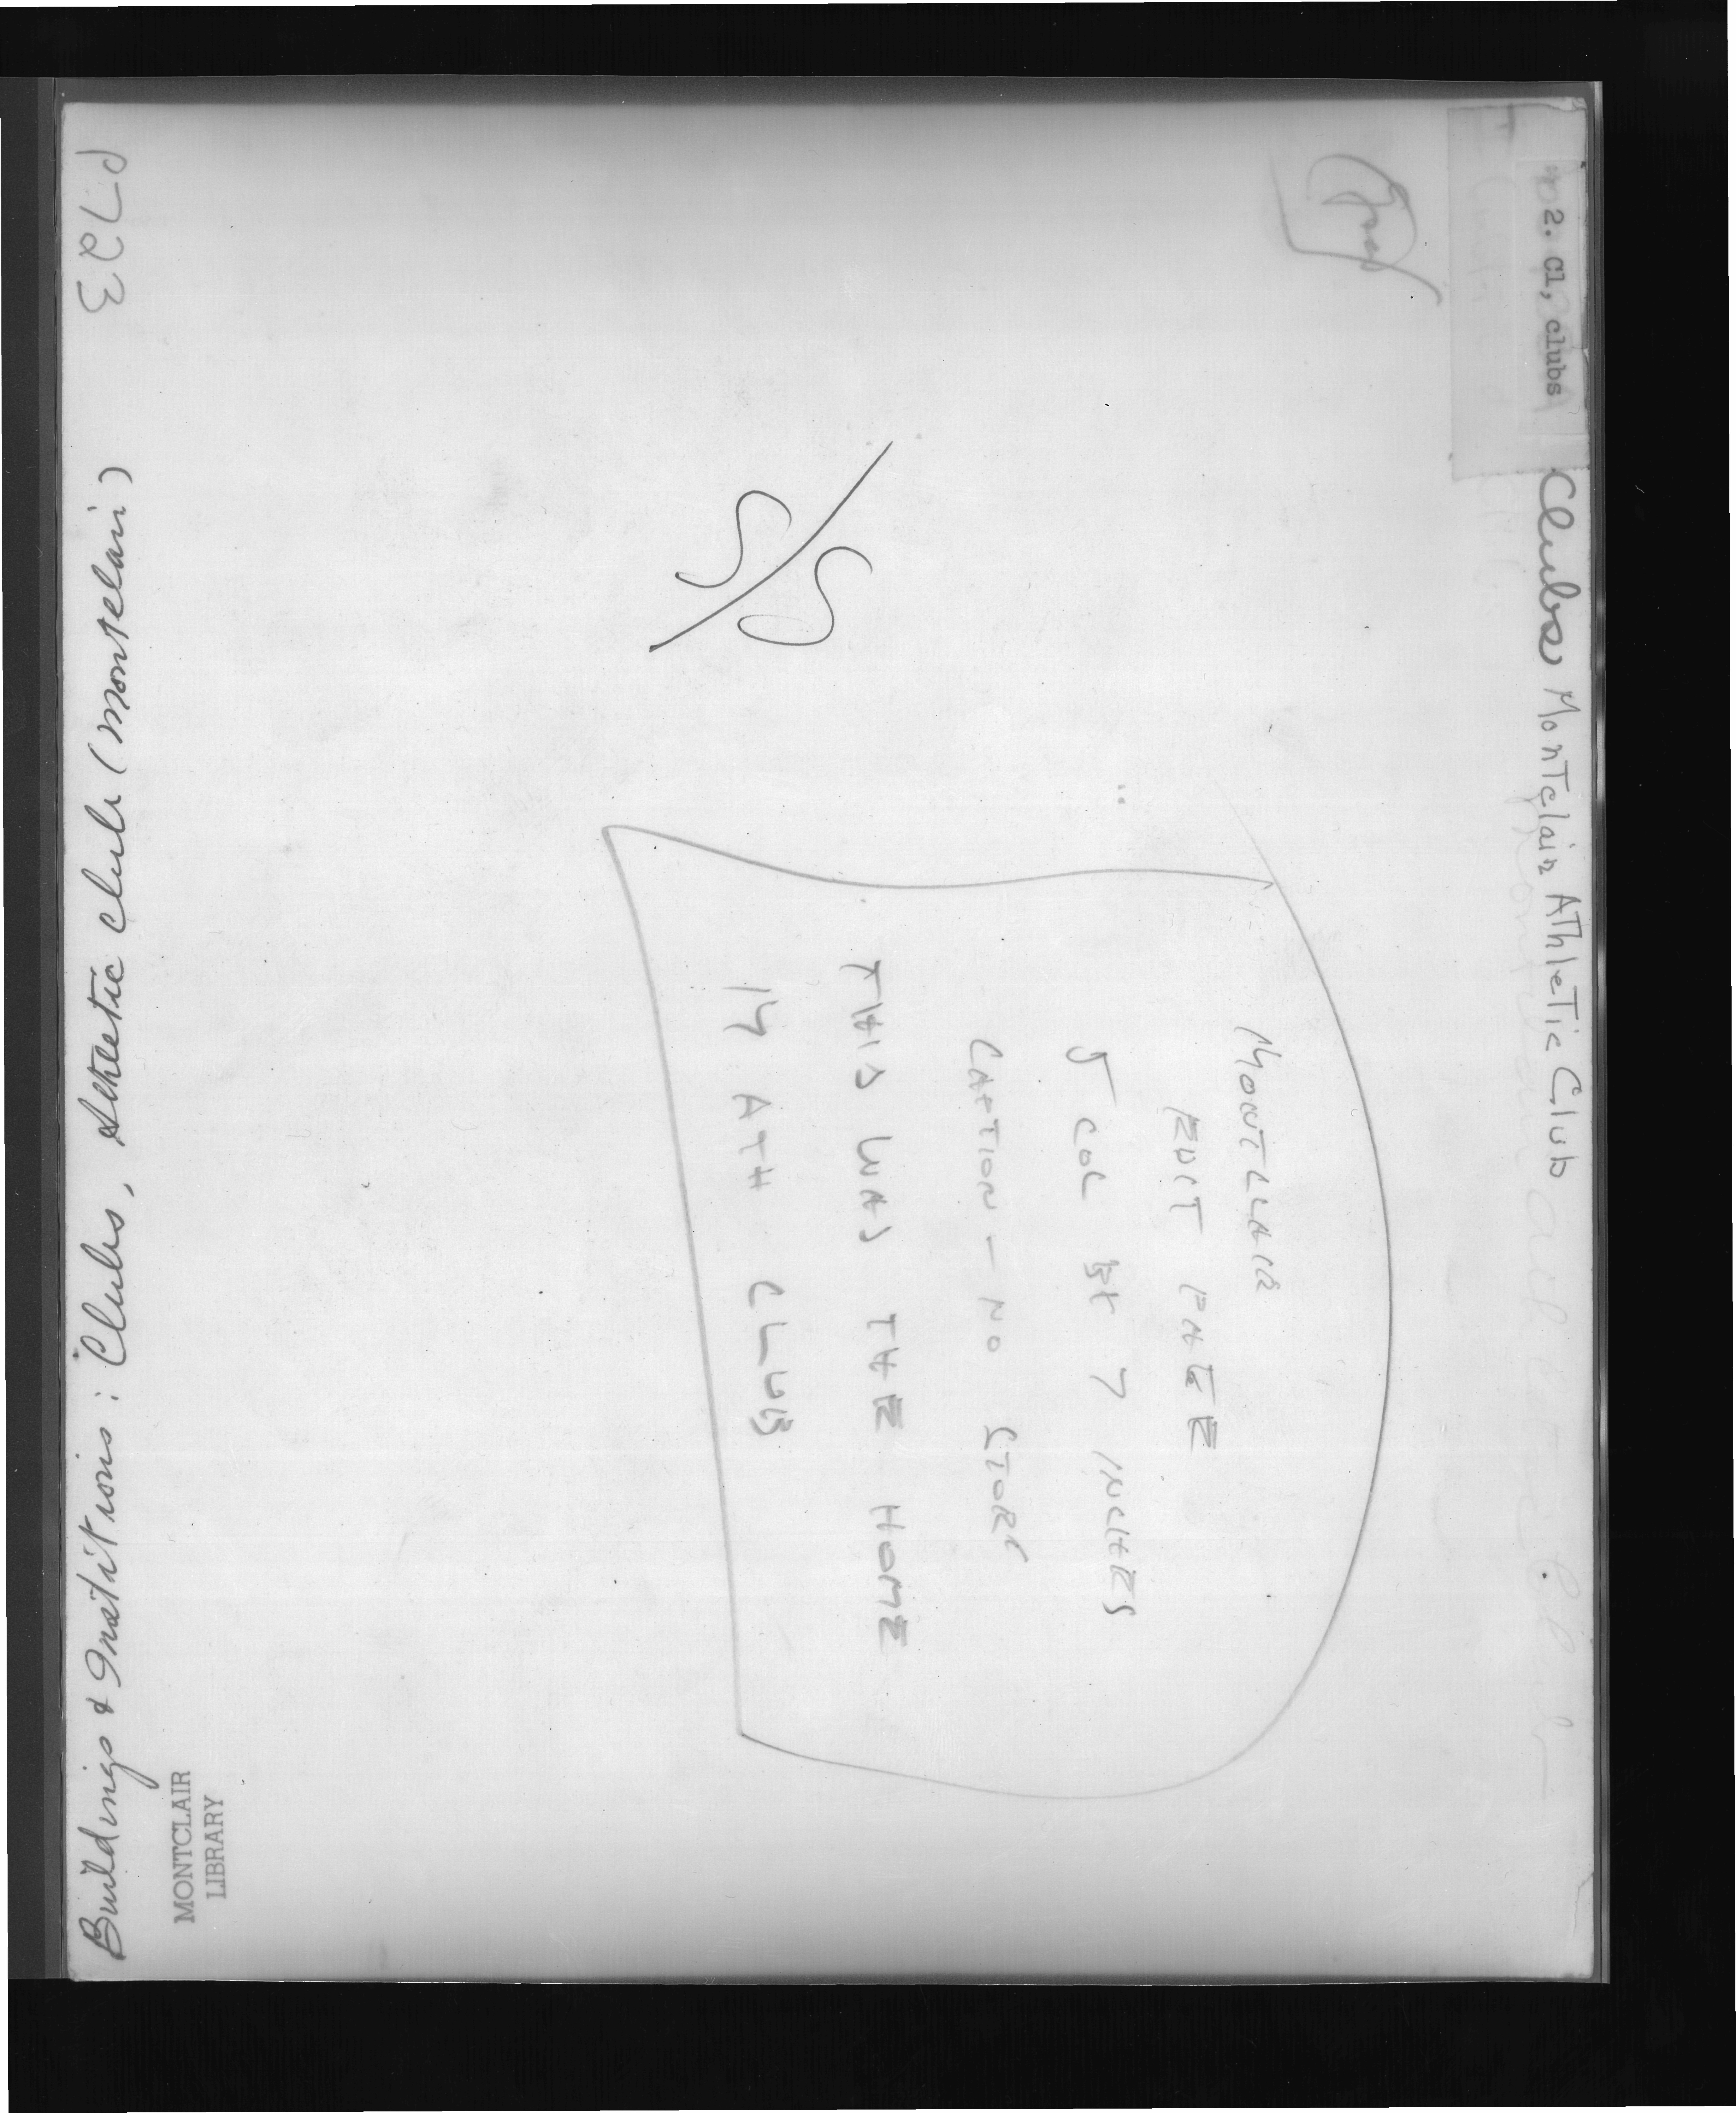 2. Cl, clubs Clubs Montclair Athletic Club
MONTCLAIR
EDIT PAGE
5 COL BY 7 INCHES
CAPTION - NO STORY
THIS WAS THE HOME
ATH CLUB
Buildings & Institions: Clubs, Athletic Club (Montclair)
MONTCLAIR
LIBRARY